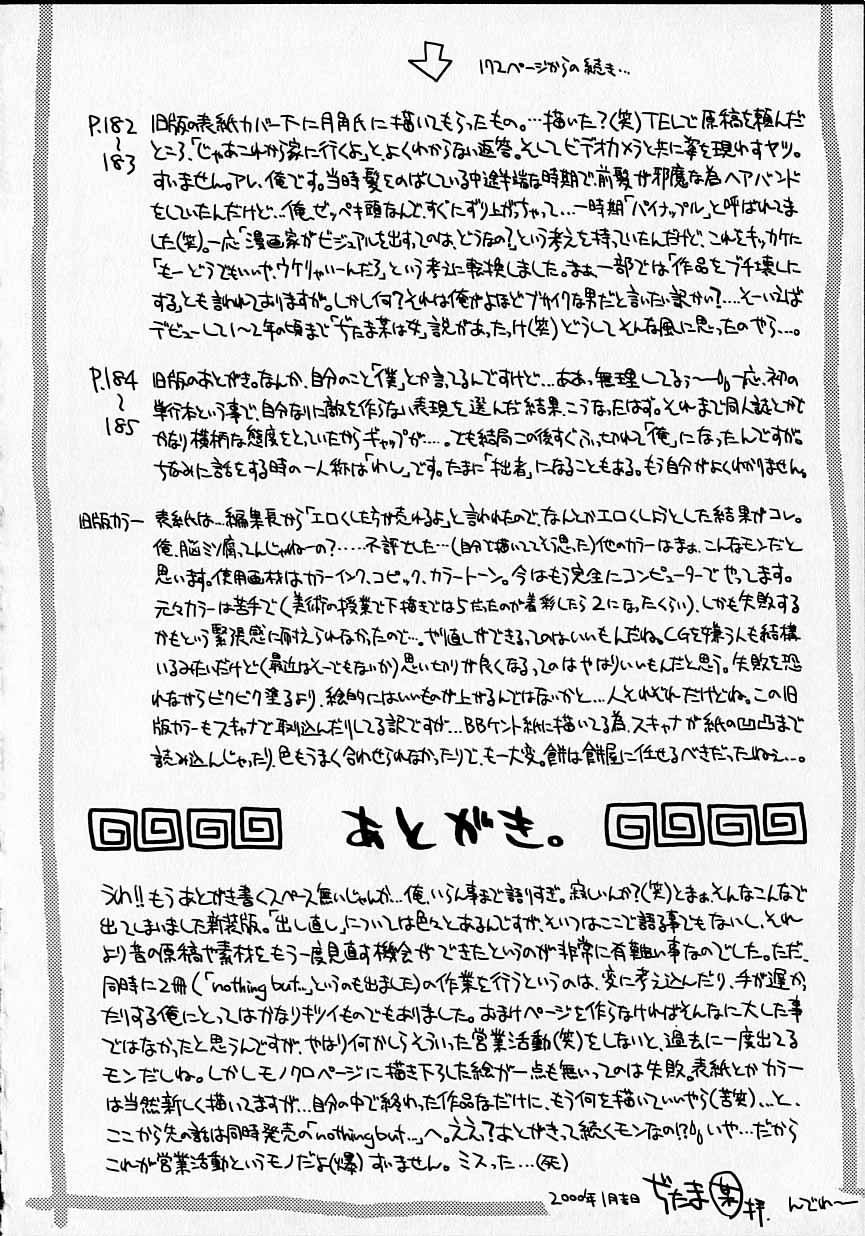 172ページからの続き…
P.182 旧版の表紙カバー下に月角氏に描いてもらったもの。…描いた?(笑)TELで原稿を頼んだ
〜 ところ、「じゃあこれから家に行くよ」と、よくわからない返答。そしてビデオカメラと共に姿を現わすヤツ。
183 すいません。アレ、俺です。当時髪をのばしている中途半端な時期で前髪が邪魔な為ヘアバンド
をしていたんだけど…俺、ゼッペキ頭なんで、すぐにずり上がっちゃって…一時期「パイナップル」と呼ばれてま
した(笑)。一応「漫画家がビジュアルを出すってのは、どうなの?」という考えを持っていたんだけど、これをキッカケに
「もーどうでもいいや、ウケりゃいーんだろ」という考えに転換しました。まぁ、一部では「作品をブチ壊しに
する」とも言われておりますが。しかし何?それは俺がよほどブサイクな男だと言いたい訳かい?…そーいえば
デビューして1〜2年の頃まで「ぢたま某は女」説があったっけ(笑)どうしてそんな風に思ったのやら…。
P.184 旧版のあとがき。なんか、自分のこと「僕」とか言ってるんですけど…ああっ無理してるぅ〜一応、初の
〜 単行本という事で、自分なりに敵を作らない表現を選んだ結果、こうなったはず。それまで同人誌とかで
185 かなり横柄な態度をとっていたからギャップが…。でも結局この後すぐふっきれて「俺」になったんですが。
ちなみに話をする時の一人称は「わし」です。たまに「拙者」になることもある。もう自分がよくわかりません。
旧版カラー 表紙は…編集長から「エロくした方が売れるよ」と言われたので、なんとかエロくしようとした結果がコレ。
俺、脳ミソ腐ってんじゃねーの?……不評でした…(自分で描いててそう思った)他のカラーはまぁ、こんなモンだと
思います。使用画材はカラーインク、コピック、カラートーン。今はもう完全にコンピューターでやってます。
元々カラーは苦手で(美術の授業で下描きでは5だったのが着彩したら2になったくらい)、しかも失敗する
かもという緊張感に耐えられなかったので…。やり直しができるってのはいいもんだね。CGを嫌う人も結構
いるみたいだけど(最近はそーでもないか)思い切りが良くなるってのはやはりいいもんだと思う。失敗を恐
れながらビクビク塗るより、絵的にはいいものが上がるんではないかと…人それぞれだけどね。この旧
版カラーもスキャナで取り込んだりしてる訳ですが…BBケント紙に描いてる為、スキャナが紙の凹凸まで
読み込んじゃったり、色もうまく合わせられなかったりで、モー大変。餅は餅屋に任せるべきだったねぇ…。
あとがき。
うわ!!もうあとがき書くスペース無いじゃんか…俺、いらん事まで語りすぎ。寂しいんか?(笑)とまぁ、そんなこんなで
出てしまいました新装版。「出し直し」については色々とあるんですが、そいつはここで語る事でもないし、それ
より昔の原稿や素材をもう一度見直す機会ができたというのが非常に有難い事なのでした。ただ、
同時に2冊(「nothing but…」というのも出ました)の作業を行うというのは、変に考え込んだり、手が遅かっ
たりする俺にとってはかなりキツイものでもありました。おまけページを作らなければそんなに大した事
ではなかったと思うんですが、やはり何かしらそういった営業活動(笑)をしないと、過去に一度出てる
モンだしね。しかしモノクロページに描き下ろした絵が一点も無いってのは失敗。表紙とかカラー
は当然新しく描いてますが…自分の中で終わった作品なだけに、もう何を描いていいやら(苦笑)…と、
ここから先の話は同時発売の「nothing but…」へ。ええっ?あとがきって続くモンなの!?いや…だから
これが営業活動というモノだよ(爆)すいません。ミスった…(死)
2000年1月吉日 ぢたま某 拝. んでわ〜